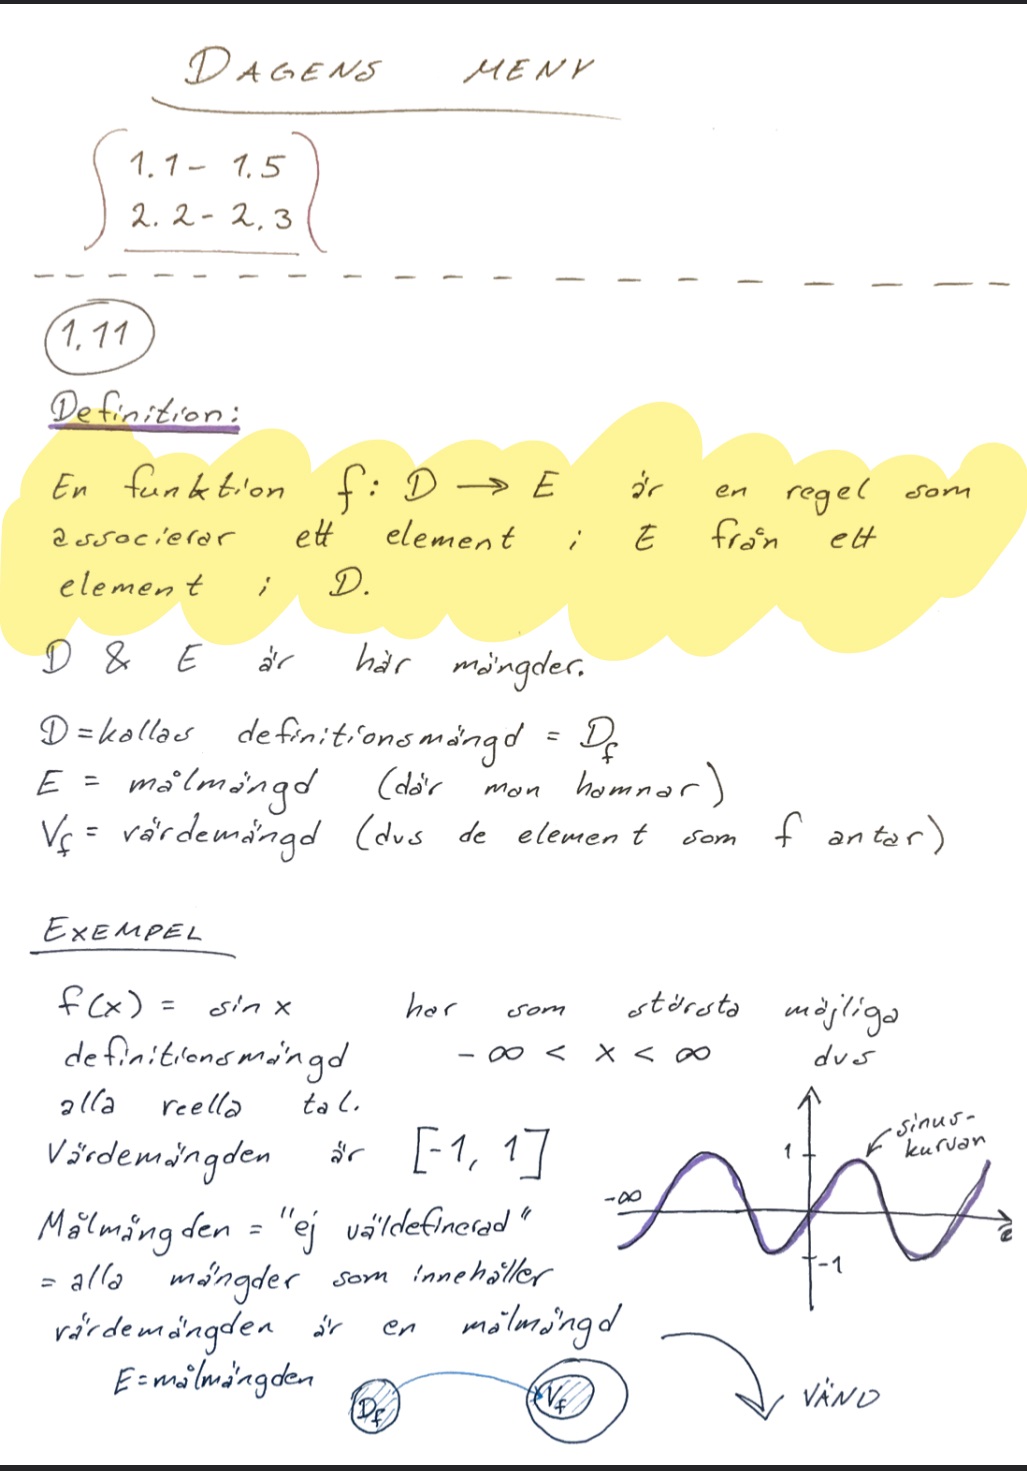 DAGENS MENY
1.1 - 1.5
2.2 - 2.3
1.11
Definition:
En funktion f: D → E är en regel som
associerar ett element i E från ett
element i D.
D & E är här mängder.
D = kallas definitionsmängd = D_f
E = målmängd (där man hamnar)
V_f = värdemängd (dvs de element som f antar)
EXEMPEL
f(x) = sin x har som största möjliga
definitionsmängd -∞ < x < ∞ dvs
alla reella tal.
Värdemängden är [-1, 1]
sinus-
kurvan
1
-∞
-1
Målmängden = "ej väldefinerad"
= alla mängder som innehåller
värdemängden är en målmängd
E = målmängden
D_f V_f
VÄND